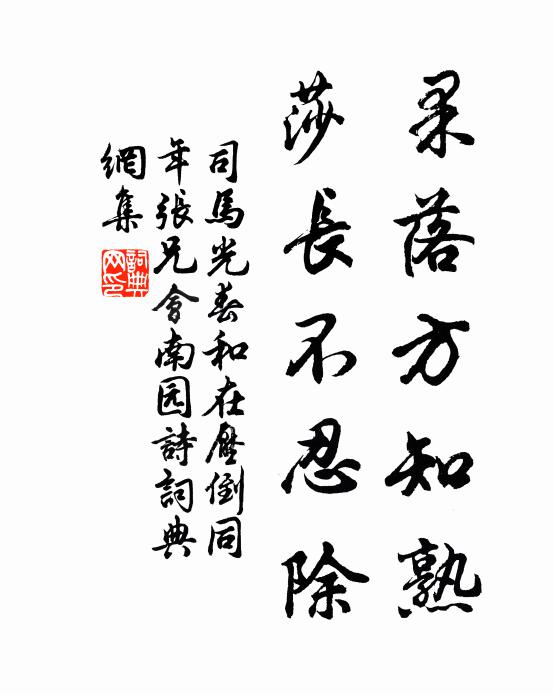 果落方知熟
莎長不忍除
司馬光春和在倒同
年張兄會南园詩詞典
網集
詞典
网印